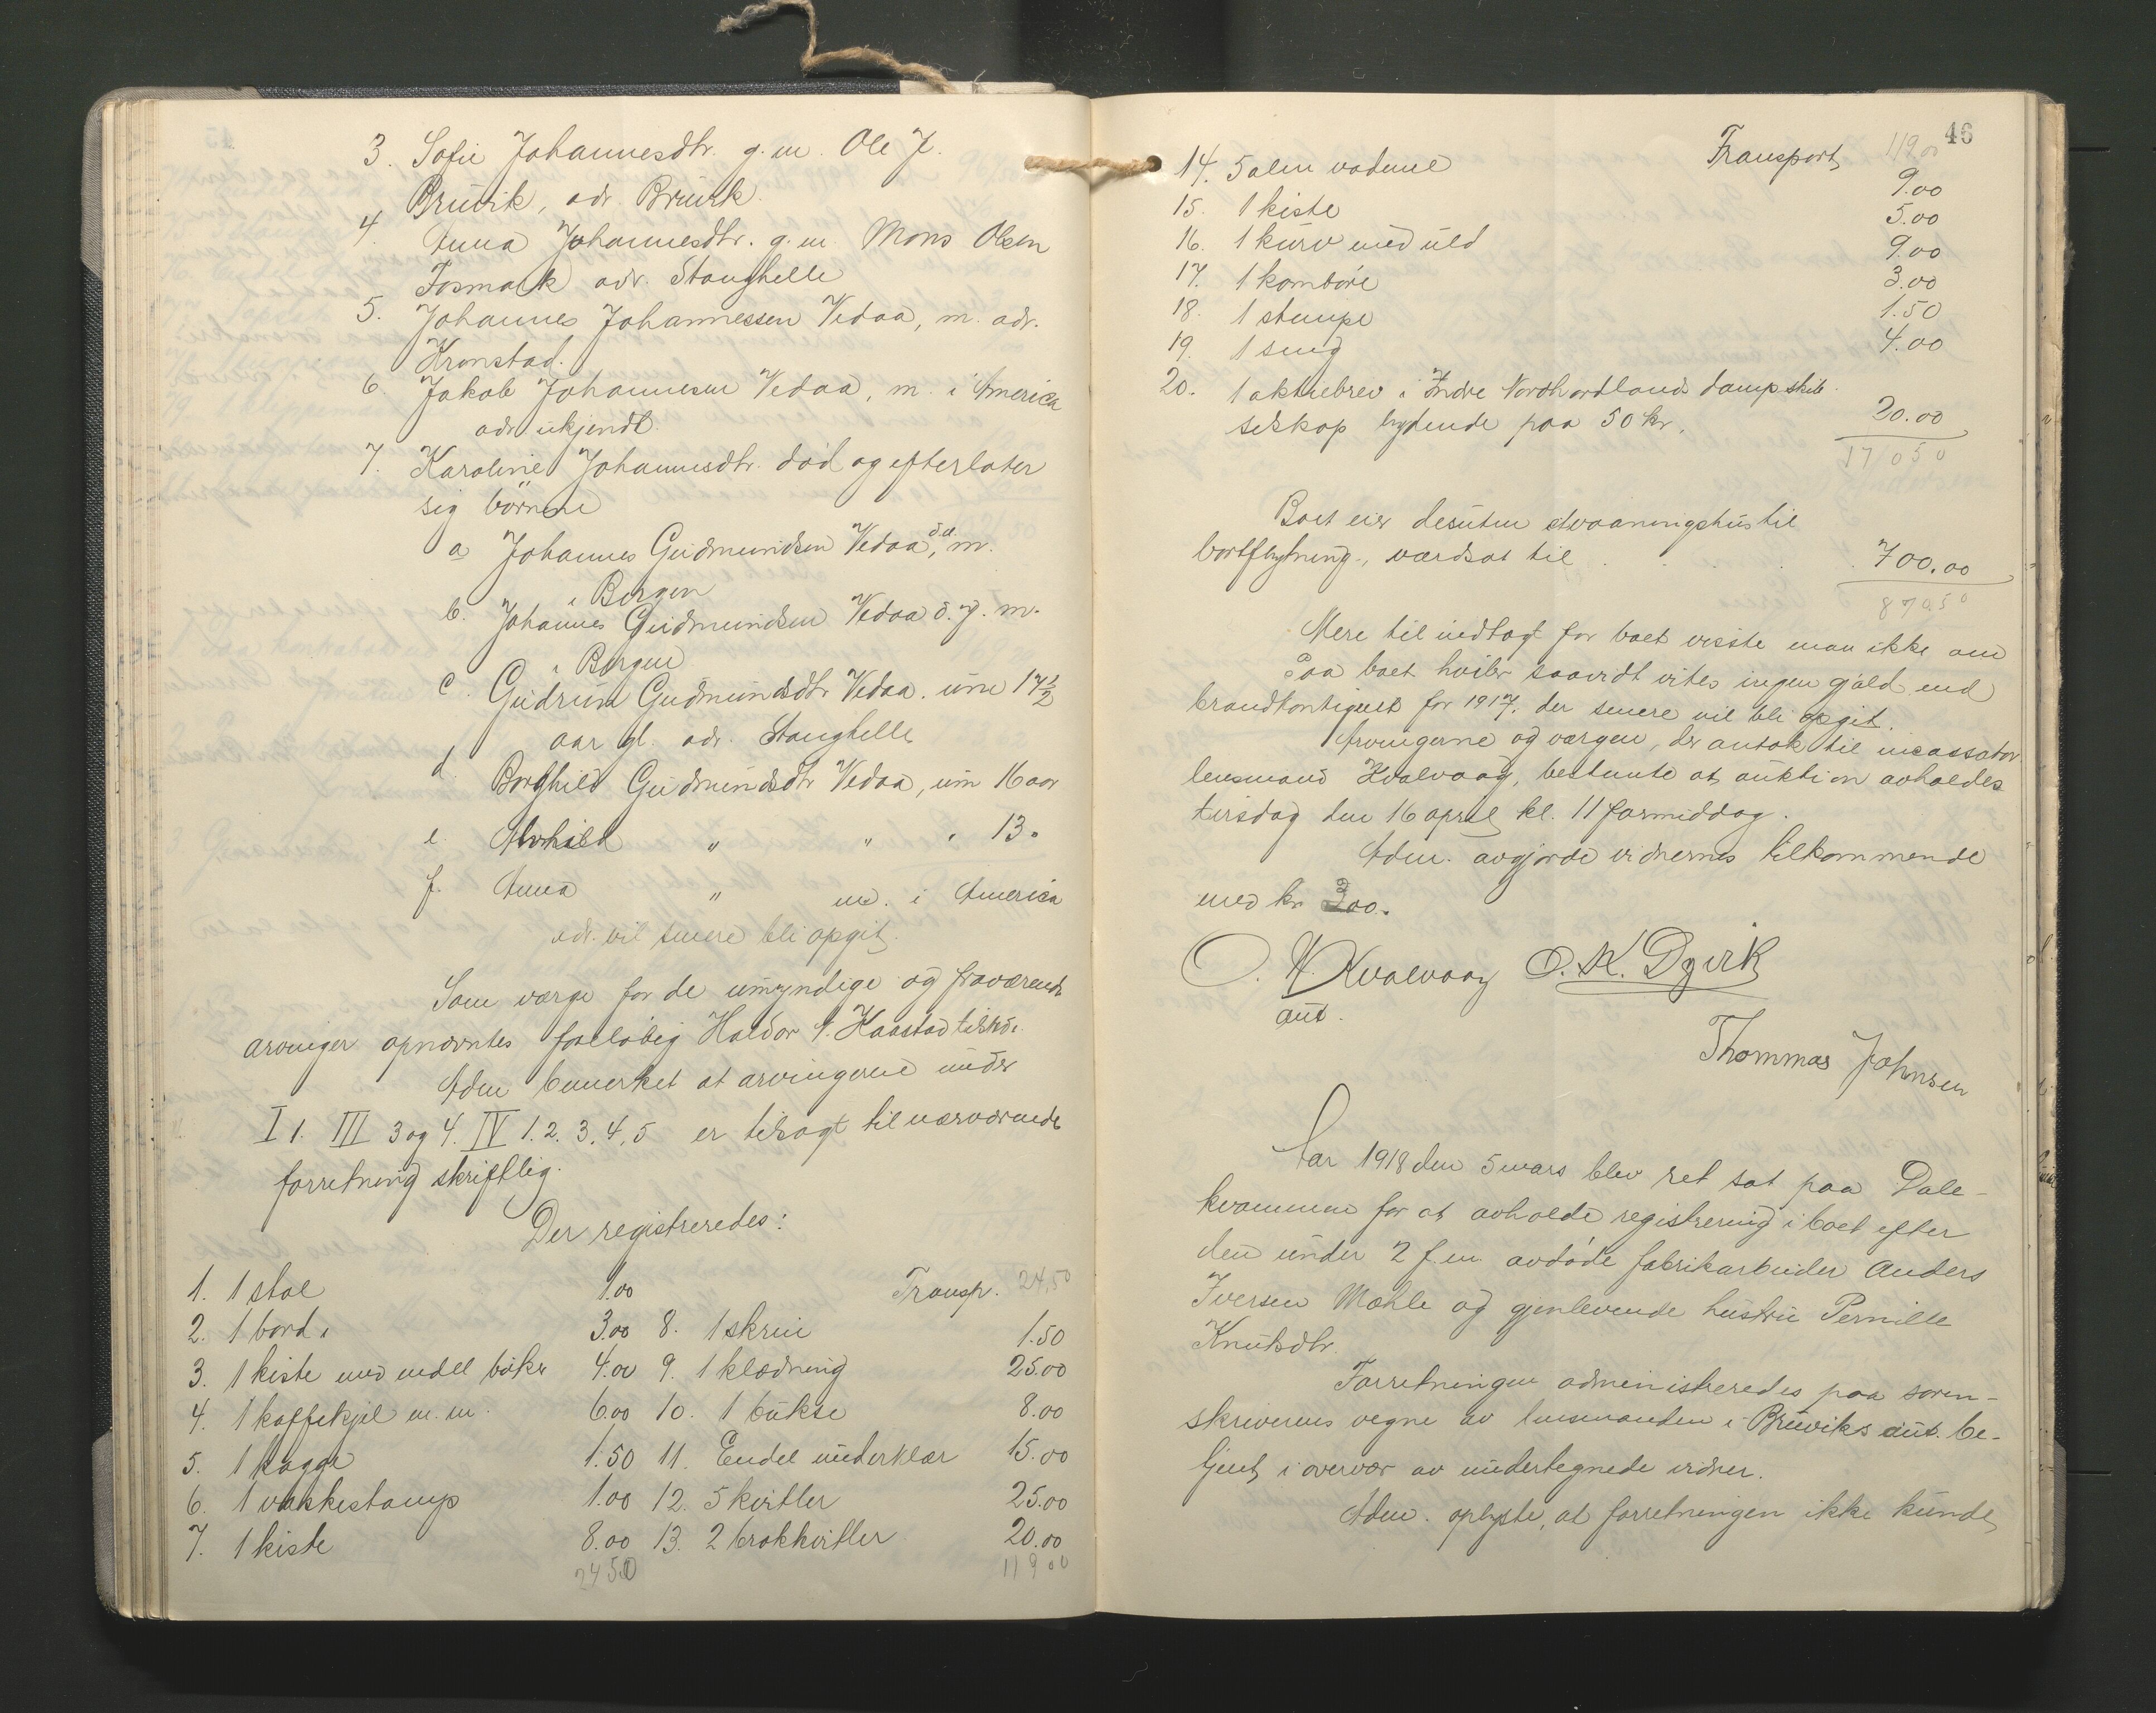 3. Sofie Johannesdtr. g. m. Ole J.
Bruvik, adr. Bruvik.
4. Anna Johannesdtr. g. m. Mons Olsen
Fosmark adr. Stanghelle
5. Johannes Johannessen Vedaa, m. adr.
Kronstad.
6. Jakob Johannesen Vedaa, m. i America
adr. ukjendt.
7. Karoline Johannesdtr. död og efterlater
sig börnene
a Johannes Gudmundsen Vedaa d.e., m.
i Bergen
b. Johannes Gudmundsen Vedaa d. y. m.
i Bergen
c. Gudrun Gudmundsdtr Vedaa. um 17½
aar gl. adr. Stanghelle
d. Borghild Gudmundsdtr Vedaa, um 16 aar
e. Alvhild " " " 13 "
f. Anna " m. i America
adr. vil senere bli opgit.
Som verge for de umyndige og fraværende
arvinger opnævntes foreløbig Haldor A. Haastad tilstede.
Adm bemerket at arvingerne under
I 1. III 3 og 4. IV 1. 2. 3. 4, 5 er tilsagt til nærværende
forretning skriftlig.
Der registreredes:
1. 1 stol 1.00 Transp. 24,50
2. 1 bord 3.00 8. 1 skrin 1.50
3. 1 kiste med endel böker 4.00 9. 1 klædning 25.00
4. 1 kaffekjel m. m. 6.00 10. 1 bukse 8.00
5. 1 kagge 1.50 11. Endel underklær 15.00
6. 1 vaskestamp 1.00 12. 5 kvitler 25.00
7. 1 kiste 8.00 13. 2 brokkvitler 20.00
24 50 119 00
46
Transport 119 00
14. 5 alen vadmel 9.00
15. 1 kiste 5.00
16. 1 kurv med uld 9.00
17. 1 komböie 3.00
18. 1 stampe 1.50
19. 1 seng 4.00
20. 1 aktiebrev i Indre Nordhordland dampskib-
selskap lydende paa 50 kr. 20.00
170 50
Boet eier desuten stvaaningshus til
bortflytning, værdsat til 700.00
870 50
Mere til indtægt for boet visste man ikke om
Paa boet hviler saavidt vites ingen gjäld end
brandkontigent for 1917. der senere vil bli opgit.
Arvingerne og vergen, der antok til incassator
lensmand Kvalvaag, bestemte at auktion avholdes
tirsdag den 16 april kl. 11 formiddag.
Adm. avgjorde vidnernes tilkommende
med kr. 200.
O. A. Kvalvaag O. K. Dyvik
aut.
Thommas Johnsen
Aar 1918 den 5 mars blev ret sat paa Dale-
kvammen for at avholde registrering i boet efter
den under 2 f. m. avdöde fabrikarbeider Anders
Iversen Mæhle og gjenlevende hustru Pernille
Knutsdtr.
Forretningen administreredes paa soren-
skriverens vegne av lensmanden i Bruviks aut. be-
tjent, i overvær av undertegnede vidner.
Adm. oplyste, at forretningen ikke kunde